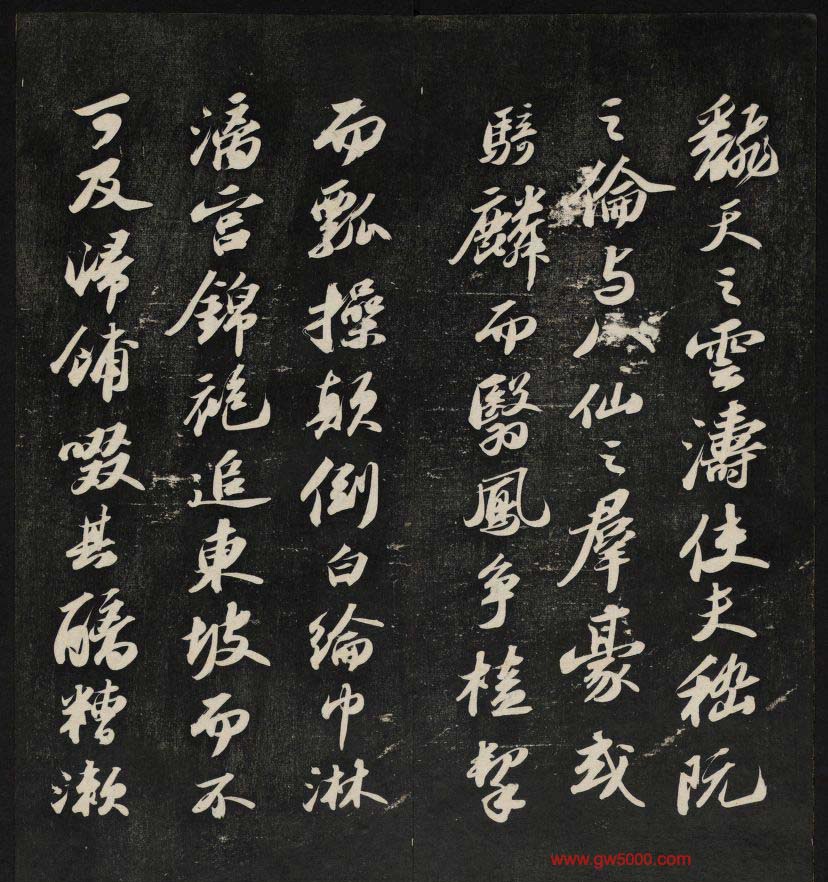 飜天之雲濤使夫嵇阮
之倫与八仙之羣豪或
騎麟而翳鳳争榼挈
而瓢操顛倒白綸巾淋
漓宫錦袍追東坡而不
可及歸餔啜其醨糟漱
www.gw5000.com